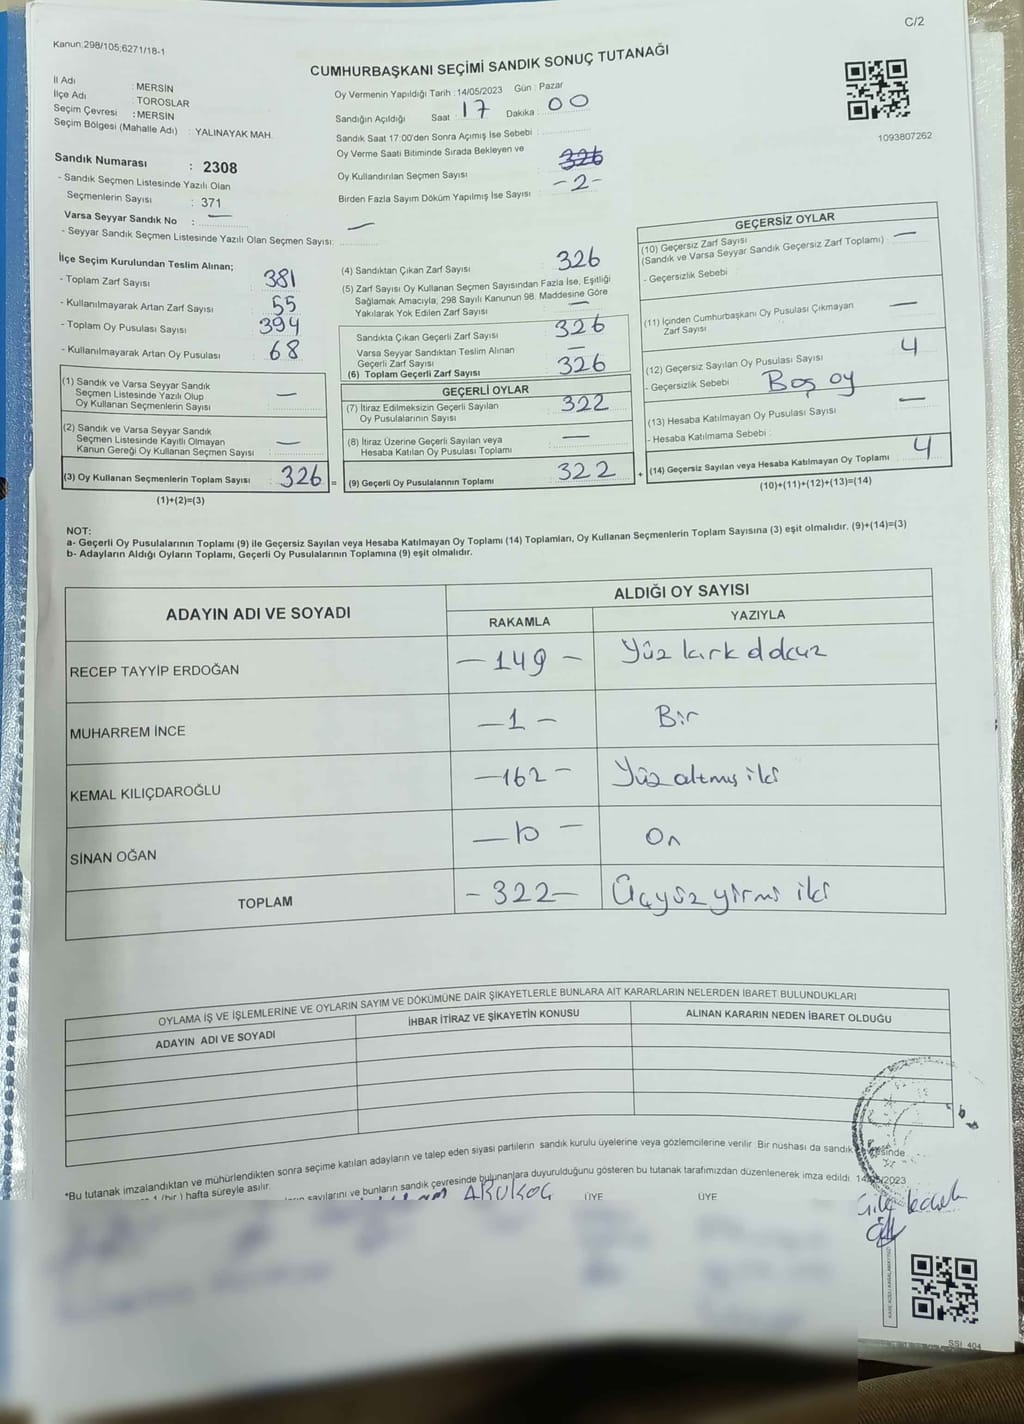 C/2
Kanun:298/105;6271/18-1
CUMHURBAŞKANI SEÇİMİ SANDIK SONUÇ TUTANAĞI
İl Adı : MERSİN
İlçe Adı : TOROSLAR
Seçim Çevresi : MERSİN
Seçim Bölgesi (Mahalle Adı) : YALINAYAK MAH.
Sandık Numarası : 2308
- Sandık Seçmen Listesinde Yazılı Olan
Seçmenlerin Sayısı : 371
Varsa Seyyar Sandık No : —
- Seyyar Sandık Seçmen Listesinde Yazılı Olan Seçmen Sayısı: —
Oy Vermenin Yapıldığı Tarih :14/05/2023 Gün : Pazar
Sandığın Açıldığı Saat : 17 Dakika : 00
Sandık Saat 17:00'den Sonra Açımış İse Sebebi :
Oy Verme Saati Bitiminde Sırada Bekleyen ve
Oy Kullandırılan Seçmen Sayısı : 326
Birden Fazla Sayım Döküm Yapılmış İse Sayısı : -2-
1093807262
İlçe Seçim Kurulundan Teslim Alınan;
- Toplam Zarf Sayısı : 381
- Kullanılmayarak Artan Zarf Sayısı : 55
- Toplam Oy Pusulası Sayısı : 394
- Kullanılmayarak Artan Oy Pusulası : 68
(1) Sandık ve Varsa Seyyar Sandık
Seçmen Listesinde Yazılı Olup
Oy Kullanan Seçmenlerin Sayısı : —
(2) Sandık ve Varsa Seyyar Sandık
Seçmen Listesinde Kayıtlı Olmayan
Kanun Gereği Oy Kullanan Seçmen Sayısı : —
(3) Oy Kullanan Seçmenlerin Toplam Sayısı : 326 =
(1)+(2)=(3)
(4) Sandıktan Çıkan Zarf Sayısı : 326
(5) Zarf Sayısı Oy Kullanan Seçmen Sayısından Fazla İse, Eşitliği
Sağlamak Amacıyla, 298 Sayılı Kanunun 98. Maddesine Göre
Yakılarak Yok Edilen Zarf Sayısı : —
Sandıkta Çıkan Geçerli Zarf Sayısı : 326
Varsa Seyyar Sandıktan Teslim Alınan
Geçerli Zarf Sayısı : —
(6) Toplam Geçerli Zarf Sayısı : 326
GEÇERLİ OYLAR
(7) İtiraz Edilmeksizin Geçerli Sayılan
Oy Pusulalarının Sayısı : 322
(8) İtiraz Üzerine Geçerli Sayılan veya
Hesaba Katılan Oy Pusulası Toplamı : —
(9) Geçerli Oy Pusulalarının Toplamı : 322 +
GEÇERSİZ OYLAR
(10) Geçersiz Zarf Sayısı
(Sandık ve Varsa Seyyar Sandık Geçersiz Zarf Toplamı) : —
- Geçersizlik Sebebi :
(11) İçinden Cumhurbaşkanı Oy Pusulası Çıkmayan
Zarf Sayısı : —
(12) Geçersiz Sayılan Oy Pusulası Sayısı : 4
- Geçersizlik Sebebi : Boş oy
(13) Hesaba Katılmayan Oy Pusulası Sayısı : —
- Hesaba Katılmama Sebebi :
(14) Geçersiz Sayılan veya Hesaba Katılmayan Oy Toplamı : 4
(10)+(11)+(12)+(13)=(14)
NOT:
a- Geçerli Oy Pusulalarının Toplamı (9) ile Geçersiz Sayılan veya Hesaba Katılmayan Oy Toplamı (14) Toplamları, Oy Kullanan Seçmenlerin Toplam Sayısına (3) eşit olmalıdır. (9)+(14)=(3)
b- Adayların Aldığı Oyların Toplamı, Geçerli Oy Pusulalarının Toplamına (9) eşit olmalıdır.
ADAYIN ADI VE SOYADI ALDIĞI OY SAYISI
RAKAMLA YAZIYLA
RECEP TAYYİP ERDOĞAN — 149 — Yüz kırk dokuz
MUHARREM İNCE — 1 — Bir
KEMAL KILIÇDAROĞLU — 162 — Yüz altmış iki
SİNAN OĞAN — 10 — On
TOPLAM - 322 — Üçyüz yirmi iki
OYLAMA İŞ VE İŞLEMLERİNE VE OYLARIN SAYIM VE DÖKÜMÜNE DAİR ŞİKAYETLERLE BUNLARA AİT KARARLARIN NELERDEN İBARET BULUNDUKLARI
ADAYIN ADI VE SOYADI İHBAR İTİRAZ VE ŞİKAYETİN KONUSU ALINAN KARARIN NEDEN İBARET OLDUĞU
*Bu tutanak imzalandıktan ve mühürlendikten sonra seçime katılan adayların ve talep eden siyasi partilerin sandık kurulu üyelerine veya gözlemcilerine verilir. Bir nüshası da sandık çevresinde
1 (bir) hafta süreyle asılır.
sayılarını ve bunların sandık çevresinde bulunanlara duyurulduğunu gösteren bu tutanak tarafımızdan düzenlenerek imza edildi. 14/05/2023
ÜYE ÜYE
SSI 404